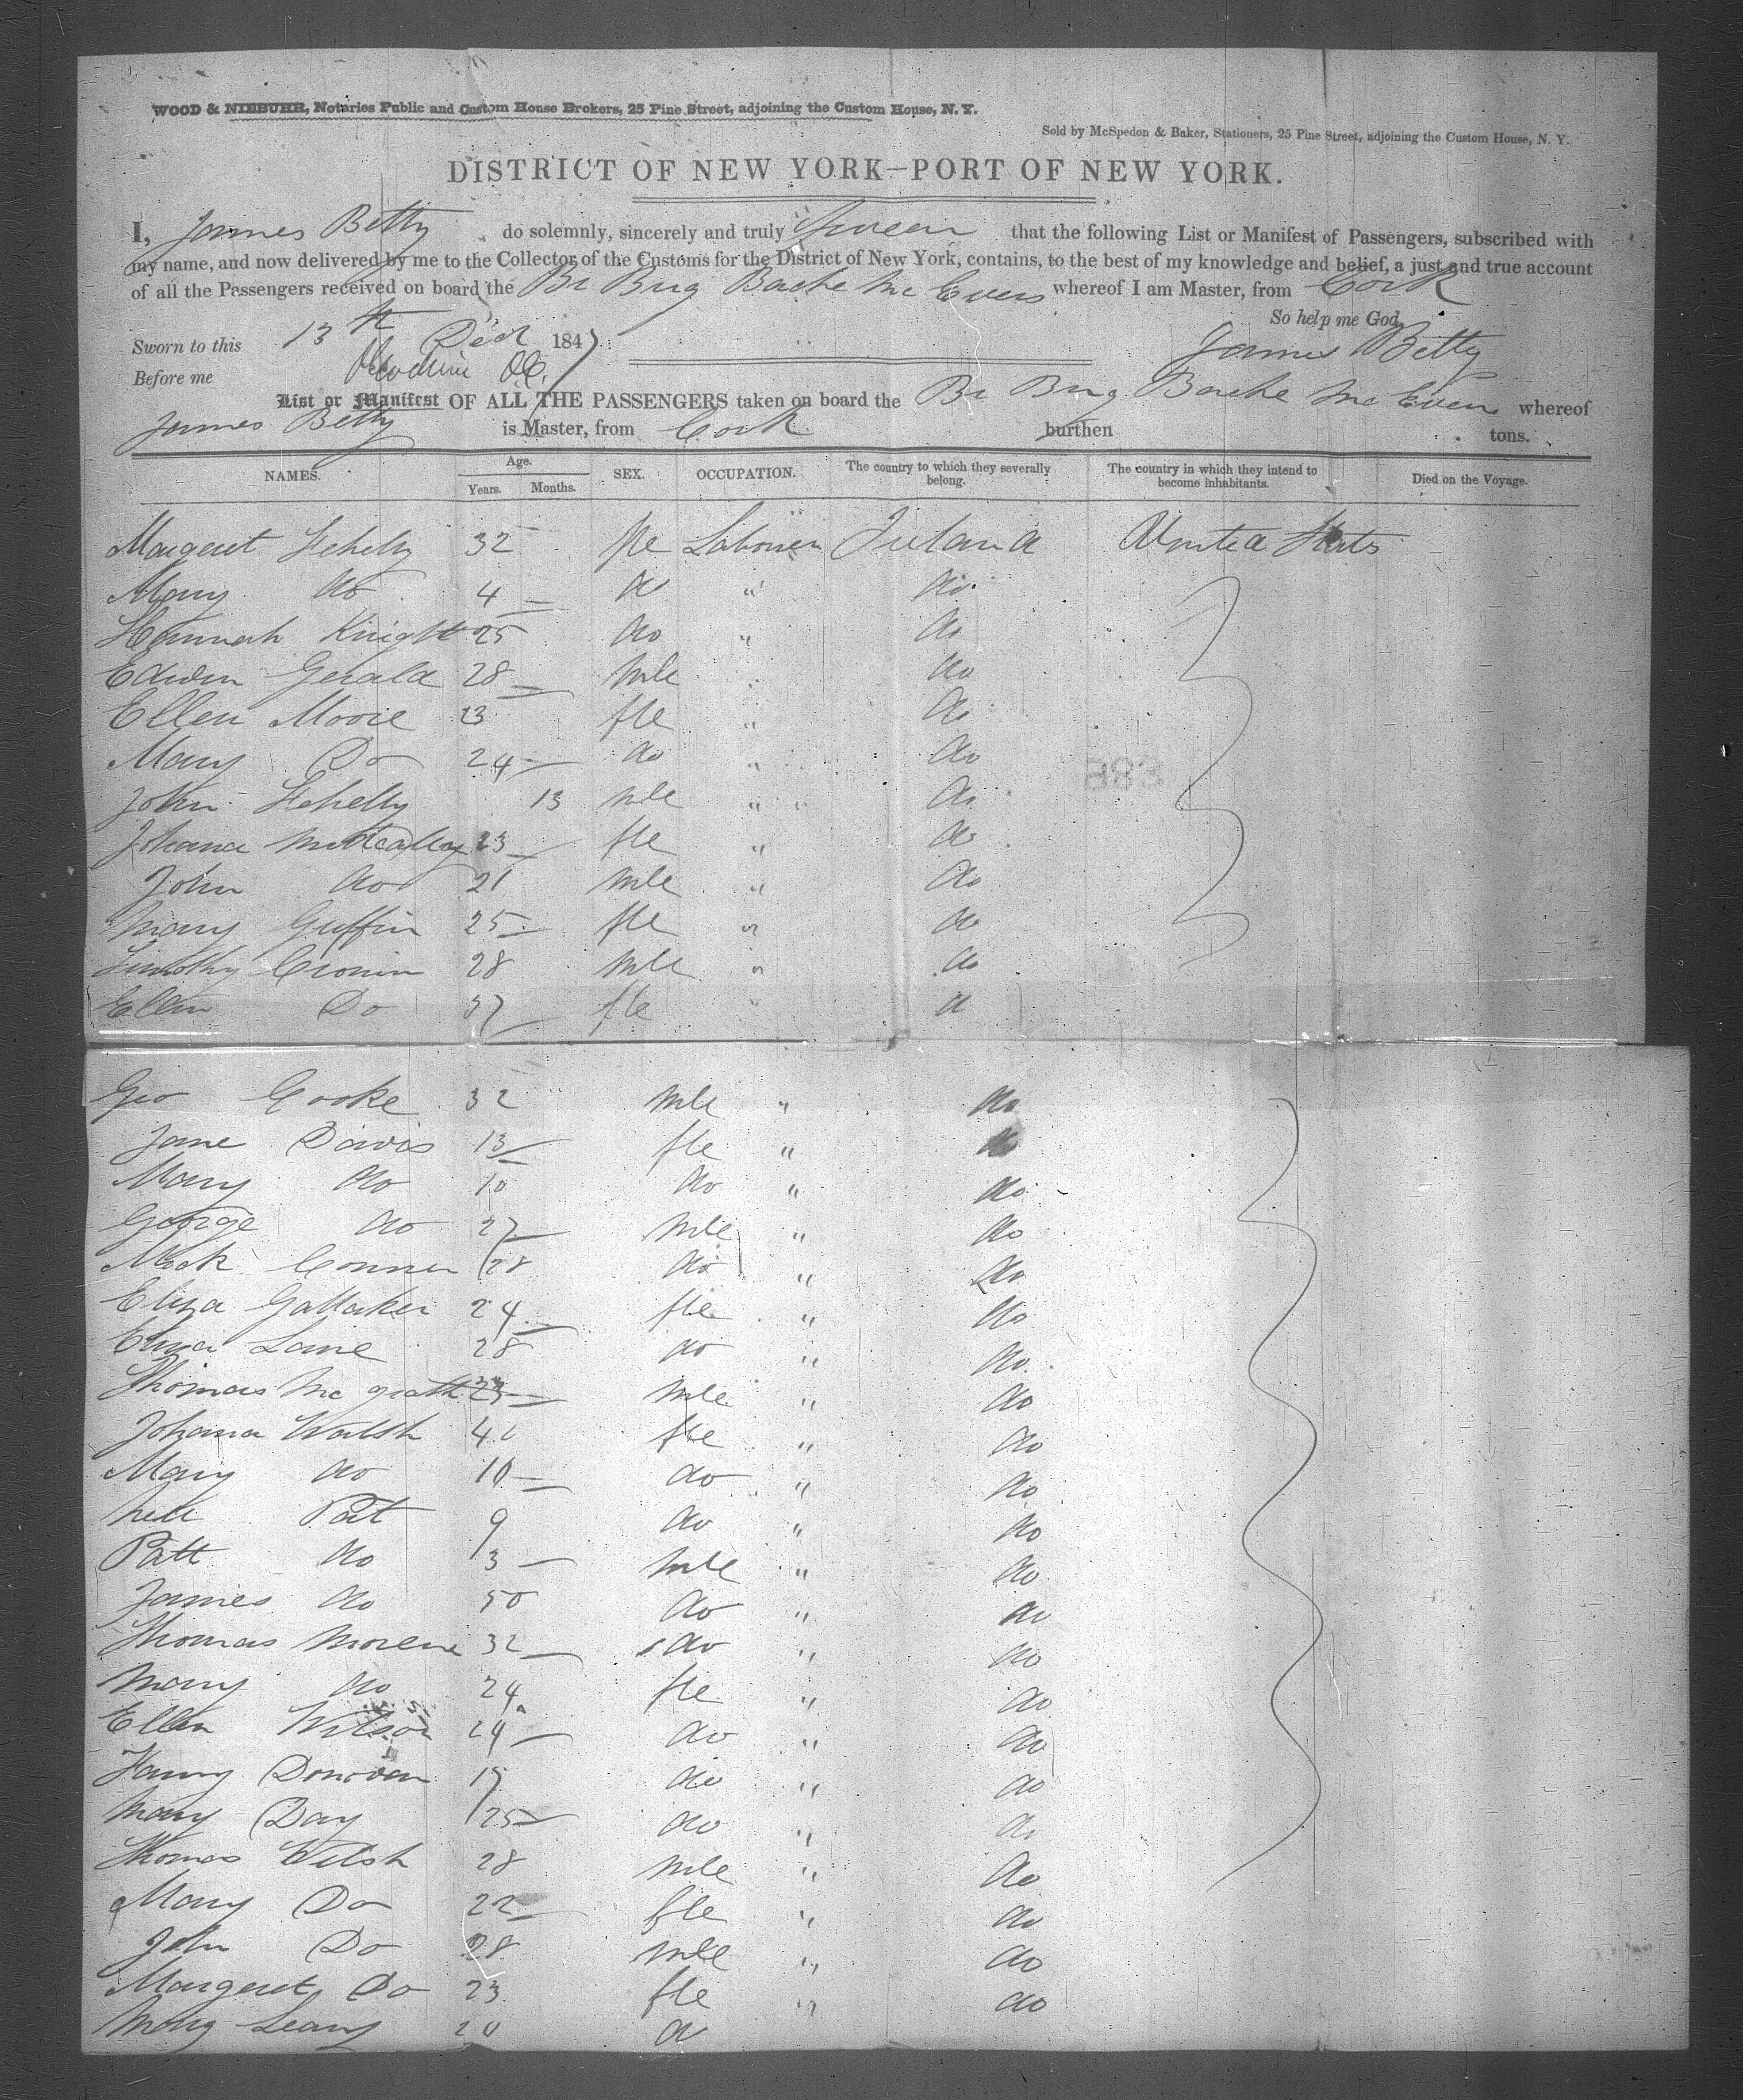 WOOD & NIEBUHR, Notaries Public and Custom House Brokers, 25 Pine Street, adjoining the Custom House, N. Y.
Sold by McSpedon & Baker, Stationers, 25 Pine Street, adjoining the Custom House, N. Y.
DISTRICT OF NEW YORK—PORT OF NEW YORK.
I, James Betty do solemnly, sincerely and truly Swear that the following List or Manifest of Passengers, subscribed with
my name, and now delivered by me to the Collector of the Customs for the District of New York, contains, to the best of my knowledge and belief, a just and true account
of all the Passengers received on board the Br Brig Bache Mc Evers whereof I am Master, from Cork
So help me God,
Sworn to this 13th Decr 1847 James Betty
Before me
List or Manifest OF ALL THE PASSENGERS taken on board the Br Brig Bache Mc Evers whereof
James Betty is Master, from Cork burthen tons.
NAMES. Age. Years. Months. SEX. OCCUPATION. The country to which they severally belong. The country in which they intend to become inhabitants. Died on the Voyage.
Margeret 32 fle Labourer Ireland United States
Mary do 4 do " do
Hannah Knight 25 do " do
Edwin Gerald 28 mle " do
Ellen Moore 23 fle " do
Mary Do 24 do " do
John 13 mle " " do
Johana 23 fle " do
John do 21 mle " do
Mary Griffin 25 fle " do
Timothy Cronin 28 mle " do
Ellen Do 37 fle " do
Geo Cooke 32 mle " do
Jane Davis 13 fle " do
Mary do 10 do " do
George do 27 mle " do
Mick Conner 28 do " do
Eliza Gallaher 24 fle " do
Eliza Lane 28 do " do
Thomas Mc grath 23 mle " do
Johana Walsh 40 fle " do
Mary do 10 do " do
Pat 9 do " do
Patt do 3 mle " do
James do 50 do " do
Thomas 32 do " do
Mary do 24 fle " do
Ellen Wilson 24 do " do
Fanny Donovan 17 do " do
Mary Day 25 do " do
Thomas Welsh 28 mle " do
Mary Do 22 fle " do
John Do 28 mle " do
Margeret Do 23 fle " do
Mary Leary 20 do